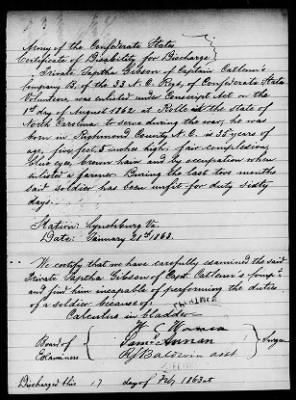 Army of the Confederate States
Certificate of Disability for Discharge
Private Japtha Gibson of Captain Catlenn's
Company B, of the 33 N.C. Regt, of Confederate States
Volunteers was enlisted under Conscript Act on the
1st day of August 1862 at in the State of
North Carolina to serve during the war, he was
born in Richmond County N.C. is 35 years of
age, five feet, 8 inches high, fair complexion,
blue eyes, brown hair and by occupation when
enlisted a farmer. During the last two months
said soldier has been unfit for duty sixty
days.
Station: Lynchburg Va.
Date: January 31st 1863.
We certify that we have carefully examined the said
Private Japtha Gibson of Capt Catlenn's Comp'y
and find him incapable of performing the duties
of a soldier because of:
Calculus in bladder
W. O.
Board of Sam'l Annan Surgeons
Examiners R. F. Baldwin asst
Discharged this 17 day of Feby 1863 at